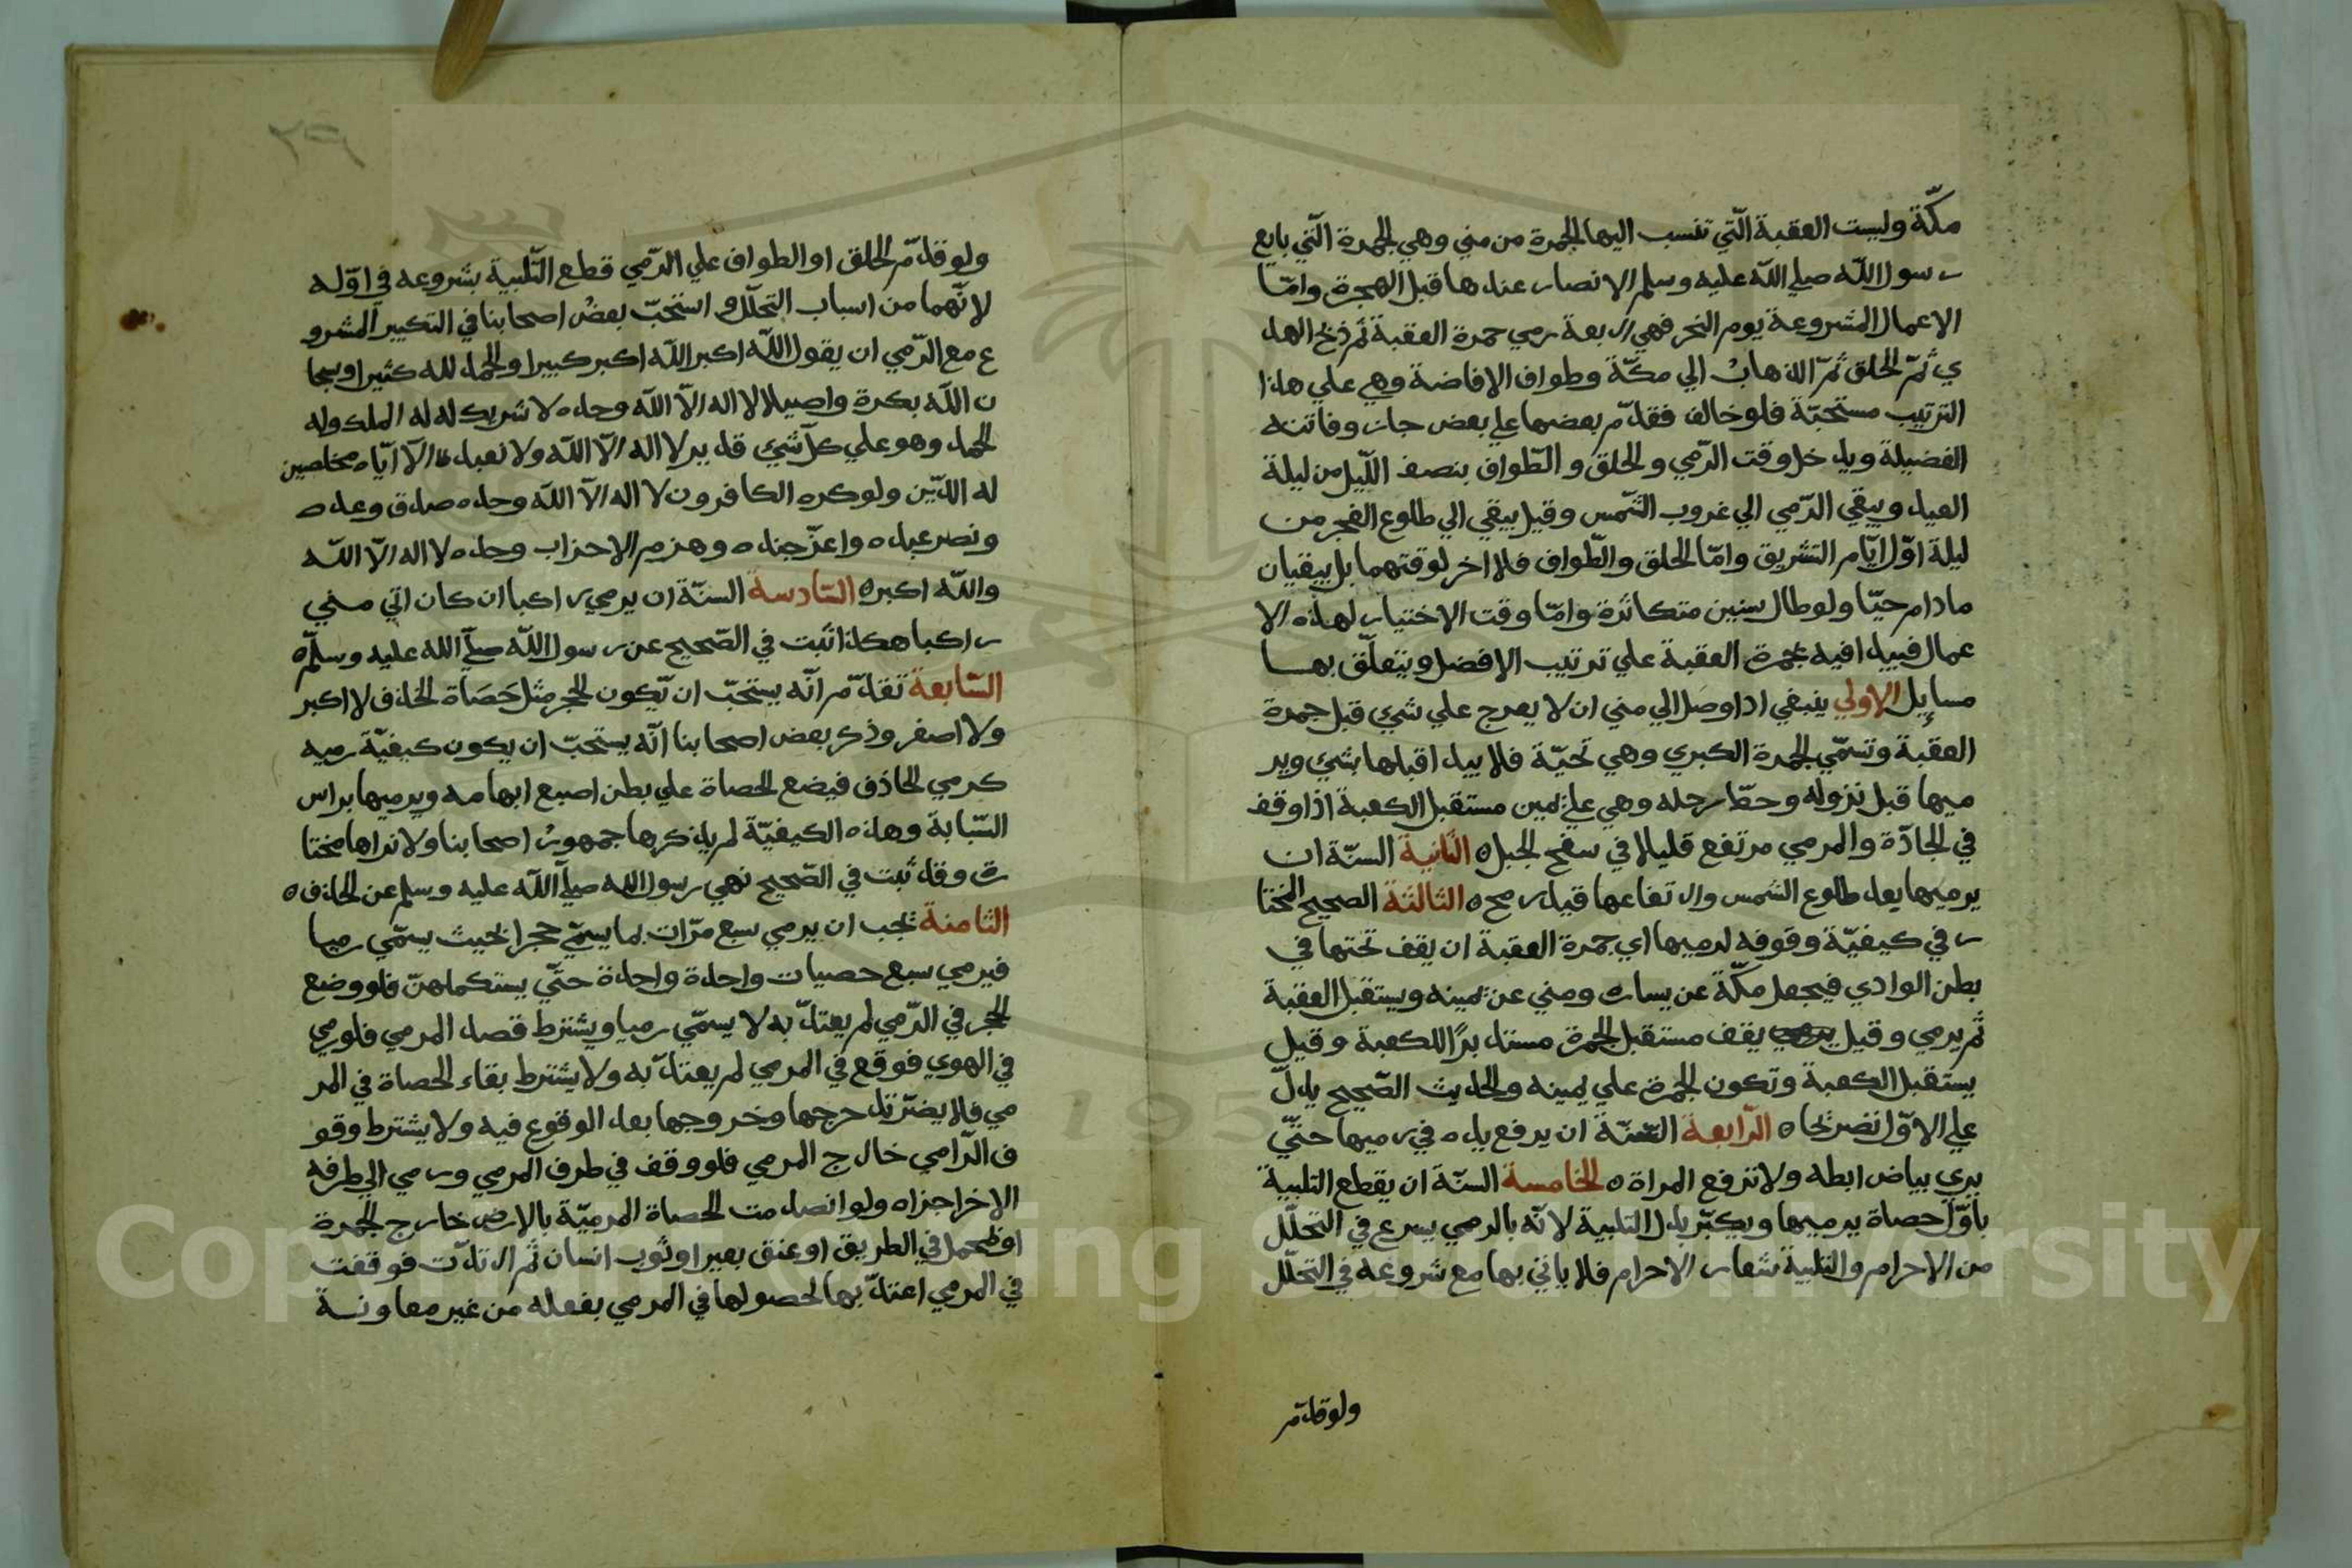 مكّة وليست العقبة الّتي تنسب اليها الجمرة من مني وهي الجمرة الّتي بايع
رسول اللّه صلي اللّه عليه وسلم الانصار عندها قبل الهجرة وامّا
الاعمال المشروعة يوم النحر فهي اربعة رمي جمرة العقبة ثم ذبح الهد
ي ثمّ الحلق ثمّ الذهاب الي مكّة وطواف الافاضة وهي علي هذا
الترتيب مستحبّة فلو خالف فقدّم بعضها علي بعض جاز وفاتته
الفضيلة ويدخل وقت الرّمي والحلق والطّواف بنصف اللّيل من ليلة
العيد ويبقي الرّمي الي غروب الشّمس وقيل يبقي الي طلوع الفجر من
ليلة اوّل ايّام التشريق وامّا الحلق والطّواف فلا اخر لوقتهما بل يبقيان
مادام حيّا ولو طال سنين متكاثرة وامّا وقت الاختيار لهذه الا
عمال فيبدا فيه بجمرة العقبة علي ترتيب الافضل ويتعلّق بها
مسايل الاولي ينبغي اذا وصل الي مني ان لا يعرج علي شي قبل جمرة
العقبة وتسمّي الجمرة الكبري وهي تحيّة فلا يبدا قبلها بشي وير
ميها قبل نزوله وحطّ رحله وهي علي يمين مستقبل الكعبة اذا وقف
في الجادّة والمرمي مرتفع قليلا في سفح الجبل ه الثانية السنّة ان
يرميها بعد طلوع الشمس وارتفاعها قيد رمح ه الثالثة الصحيح المختا
ر في كيفيّة وقوفه لرميها اي جمرة العقبة ان يقف تحتها في
بطن الوادي فيجعل مكّة عن يساره ومني عن يمينه ويستقبل العقبة
ثم يرمي وقيل يقف مستقبل الجمرة مستدبرًا للكعبة وقيل
يستقبل الكعبة وتكون الجمرة علي يمينه والحديث الصّحيح يدلّ
علي الاوّل نصريحا ه الرّابعة السّنّة ان يرفع يده في رميها حتّي
يري بياض ابطه ولا ترفع المراة ه الخامسة السنّة ان يقطع التلبية
باوّل حصاة يرميها ويكبّر بدل التلبية لانّه بالرمي يسرع في التحلّل
من الاحرام والتلبية شعار الاحرام فلا ياتي بها مع شروعه في التحلّل
ولو قدّم
٢٩
ولو قدّم الحلق او الطواف علي الرّمي قطع التّلبية بشروعه في اوّله
لانّهما من اسباب التحلّل واستحبّ بعض اصحابنا في التكبير المشرو
ع مع الرّمي ان يقول اللّه اكبر اللّه اكبر كبيرا والحمد لله كثيرا وسبحا
ن اللّه بكرة واصيلا لا اله الاّ اللّه وحده لا شريك له له الملك وله
الحمد وهو علي كلّ شي قدير لا اله الاّ اللّه ولا نعبد الاّ ايّاه مخلصين
له الدّين ولو كره الكافرون لا اله الاّ اللّه وحده صدق وعده
ونصر عبده واعزّ جنده وهزم الاحزاب وحده لا اله الاّ اللّه
واللّه اكبر ه السّادسة السنّة ان يرمي راكبا ان كان اتي مني
راكبا هكذا ثبت في الصّحيح عن رسول اللّه صلّي الله عليه وسلّم ه
السّابعة تقدّم انّه يستحبّ ان يّكون الحجر مثل حَصَاة الخذف لا اكبر
ولا اصغر وذكر بعض اصحابنا انّه يستحبّ ان يكون كيفيّة رميه
كرمي الحاذف فيضع الحصاة علي بطن اصبع ابهامه ويرميها براس
السّبّابة وهذه الكيفيّة لم يذكرها جمهور اصحابنا ولا نراها مختا
رة وقد ثبت في الصّحيح نهي رسول الله صلّي اللّه عليه وسلم عن الخذف ه
الثامنة يجب ان يرمي سبع مرّات بما يسمّي حجرا بحيث يسمّي رميا
فيرمي سبع حصيات واحدة واحدة حتّي يستكملهنّ فلو وضع
الحجر في الرّمي لم يعتدّ به لا يسمّي رميا ويشترط قصد المرمي فلو رمي
في الهوي فوقع في المرمي لم يعتدّ به ولا يشترط بقاء الحصاة في المر
مي فلا يضرّ تدحرجها وخروجها بعد الوقوع فيه ولا يشترط وقو
ف الرّامي خارج المرمي فلو وقف في طرف المرمي ورمي الي طرفه
الاخر اجزاه ولو انصدمت الحصاة المرميّة بالارض خارج الجمرة
او بمحمل في الطريق او عنق بعير او ثوب انسان ثم ارتدّت فوقفت
في المرمي اعتدّ بها لحصولها في المرمي بفعله من غير معاونة